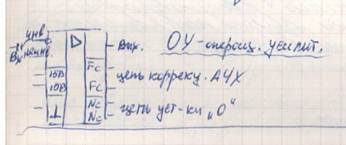 инв.
Вх. неинв.
Вых. ОУ-операц. усилит.
15В Fc цепь коррекц. АЧХ
10В Fc
Nc цепь уст-ки „О"
Nc